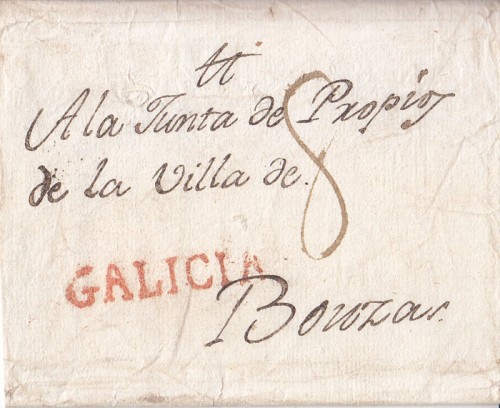 A la Junta de Propios
8
de la Villa de
GALICIA
Bouzas.